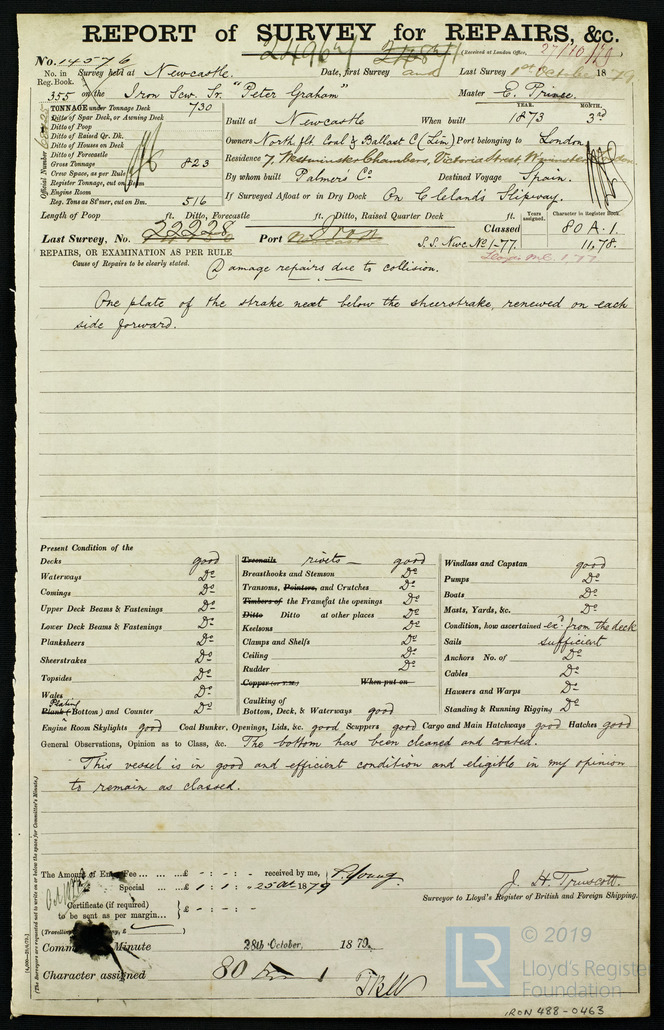 REPORT of SURVEY for REPAIRS, &c.
(Received at London Office, 27/10/79
No. 14576 Survey held at Newcastle. Date, first Survey and Last Survey 1st October 1879
No. in Reg. Book.
355 on the Iron Scw. Sr. "Peter Graham" Master E. Prince.
TONNAGE under Tonnage Deck 730
Ditto of Spar Deck, or Awning Deck
Ditto of Poop
Ditto of Raised Qr. Dk.
Ditto of Houses on Deck
Ditto of Forecastle
Gross Tonnage 823
Crew Space, as per Rule
Register Tonnage, cut on Beam
Engine Room
Reg. Tons as St'mer, cut on Bm. 516
Official Number
YEAR. MONTH.
Built at Newcastle When built 1873 3rd
Owners North Coal & Ballast Co (Lim) Port belonging to London
Residence 7, Westminster Chambers, Victoria Street Westminster London
By whom built Palmers Co. Destined Voyage Spain.
If Surveyed Afloat or in Dry Dock On Cleland's Slipway.
Length of Poop ft. Ditto, Forecastle ft. Ditto, Raised Quarter Deck ft.
Years assigned. Character in Register Book.
Classed 80 A.1.
Last Survey, No. 22228 Port Iron S.S. Nwc No 1-77. 11,78.
Lloyds MC 1 77
REPAIRS, OR EXAMINATION AS PER RULE
Cause of Repairs to be clearly stated.
Damage repairs due to collision.
One plate of the strake next below the sheerstrake, renewed on each
side forward.
Present Condition of the
Decks good
Waterways Do
Comings Do
Upper Deck Beams & Fastenings Do
Lower Deck Beams & Fastenings Do
Planksheers Do
Sheerstrakes Do
Topsides Do
Wales Do
Plating
Plank (Bottom) and Counter Do
Treenails rivets good
Breasthooks and Stemson Do
Transoms, Pointers, and Crutches Do
Timbers of the Frames at the openings Do
Ditto Ditto at other places Do
Keelsons Do
Clamps and Shelfs Do
Ceiling Do
Rudder Do
Copper (or Y.M.) When put on
Caulking of
Bottom, Deck, & Waterways good
Windlass and Capstan good
Pumps Do
Boats Do
Masts, Yards, &c. Do
Condition, how ascertained ex. from the deck
Sails sufficient
Anchors No. of Do
Cables Do
Hawsers and Warps Do
Standing & Running Rigging Do
Engine Room Skylights good Coal Bunker, Openings, Lids, &c. good Scuppers good Cargo and Main Hatchways good Hatches good
General Observations, Opinion as to Class, &c. The bottom has been cleaned and coated.
This vessel is in good and efficient condition and eligible in my opinion
to remain as classed.
The Amount of Entry Fee ... £ - : - : - received by me,
Special ... £ 1 : 1 : - 25 Oct 1879
Certificate (if required) £ - : - : -
to be sent as per margin...
J. H. Truscott.
Surveyor to Lloyd's Register of British and Foreign Shipping.
Minute 28th October, 1879.
Character assigned 80 1
(The Surveyors are requested not to write on or below the space for Committee's Minute.)
LR
© 2019
Lloyd's Register
Foundation
IRON 488-0463